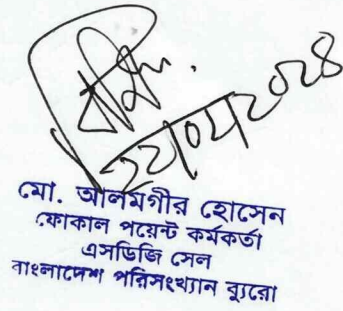 মো. আলমগীর হোসেন
ফোকাল পয়েন্ট কর্মকর্তা
এসডিজি সেল
বাংলাদেশ পরিসংখ্যান ব্যুরো